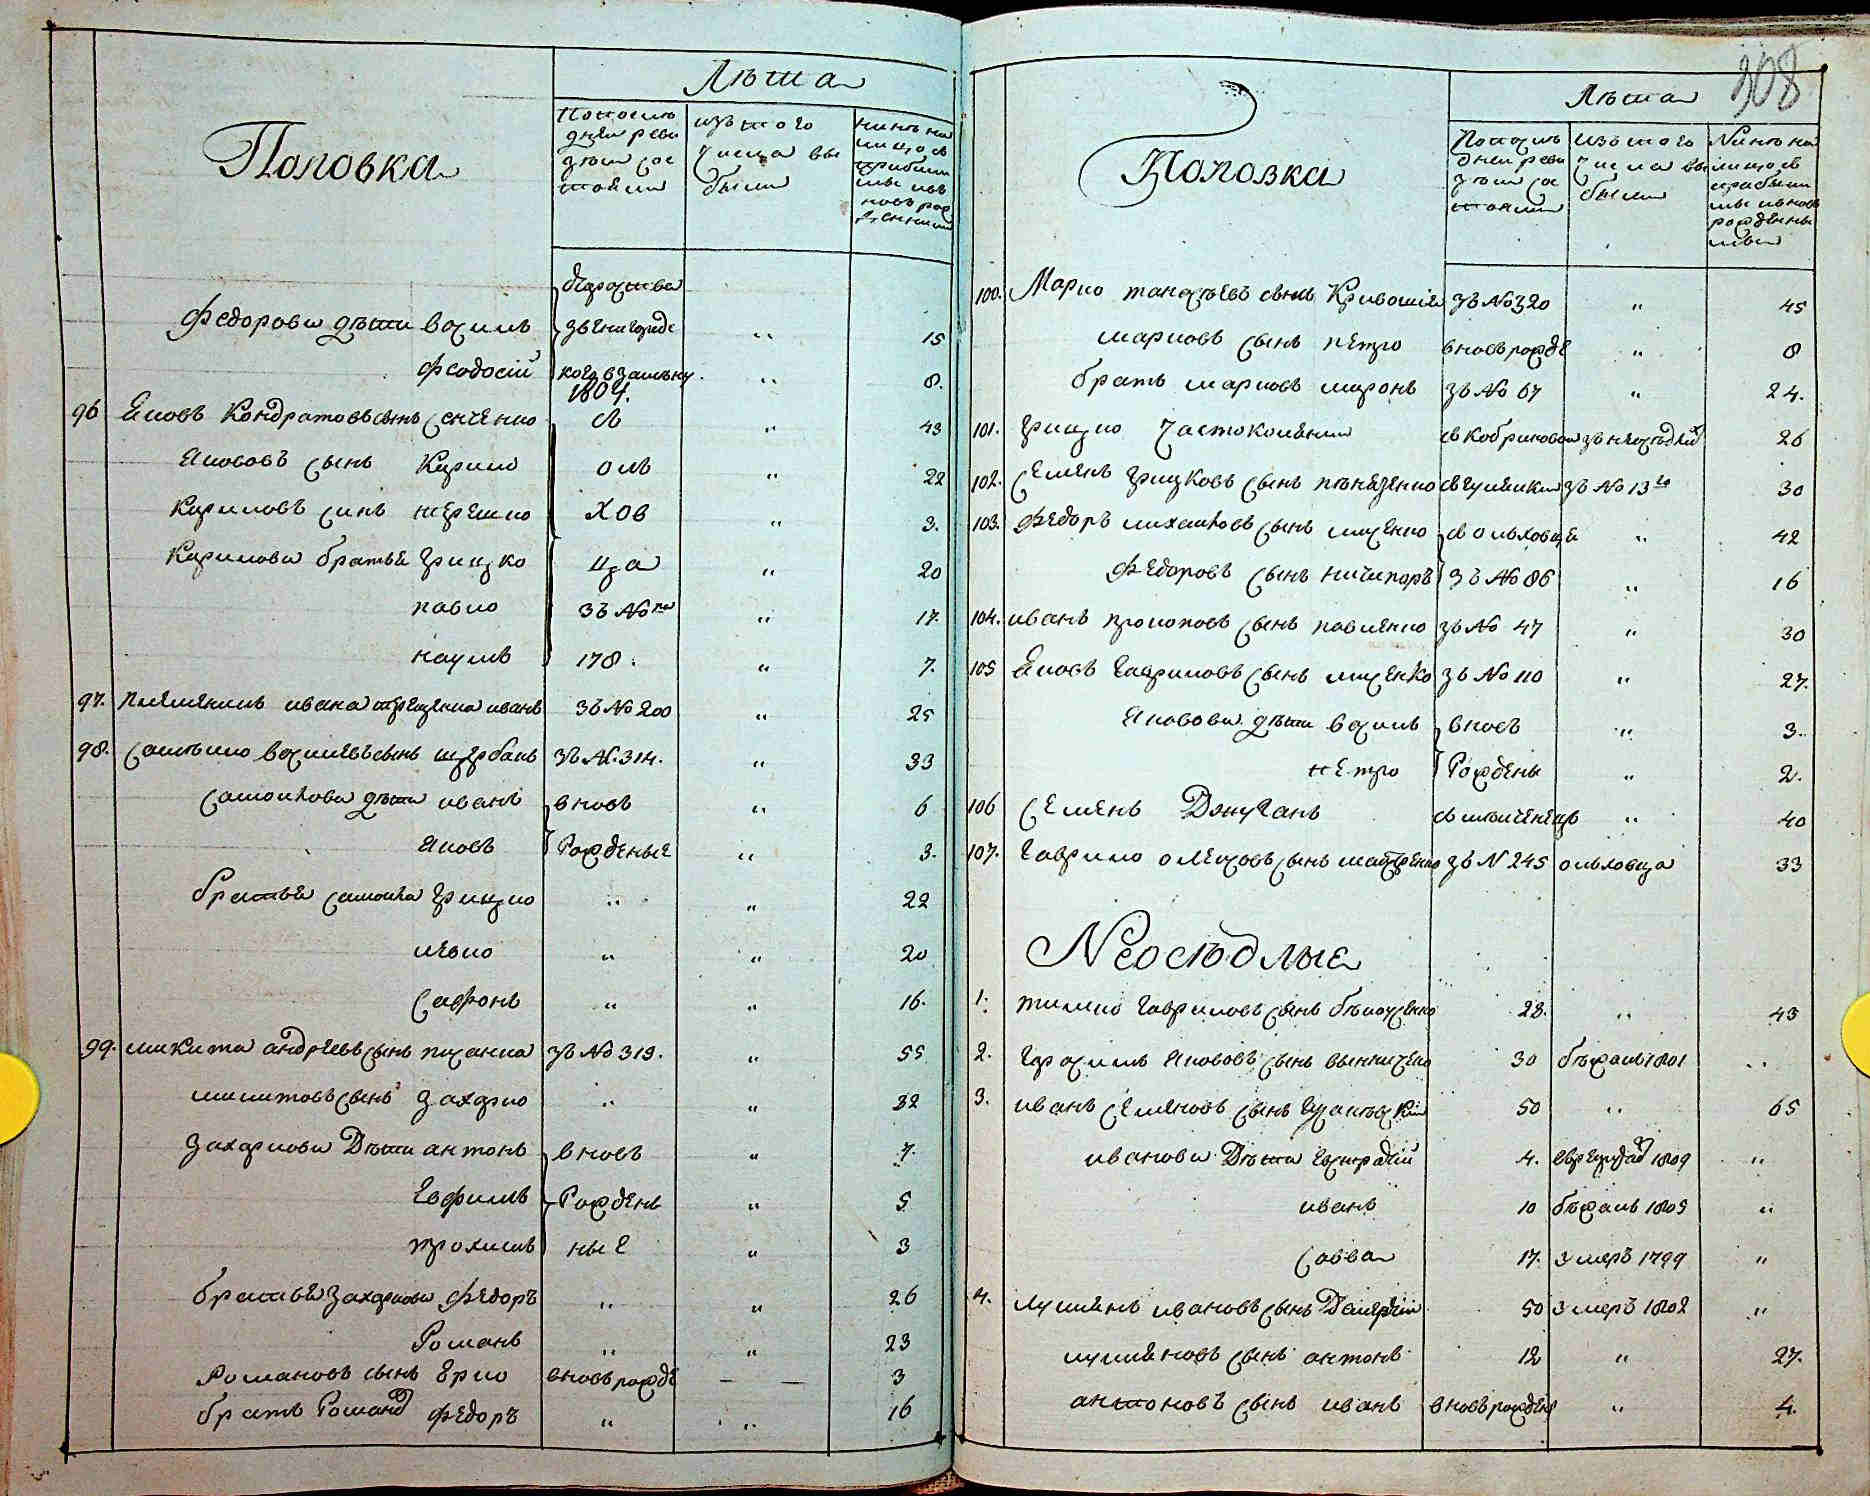 Лѣта
Половка
По последней ревизіи состояли
изъ того числа выбыли
Нинѣ на лицо съ прибылми и вновь рожденими
Федорови дѣти василь звенигородс 15
феодосій 8.
1804.
96 Яковъ Кондратовъ сынъ сенченко с 43
Якововъ сынъ Кирило оль 22
Кириловъ синъ терешко хов 3.
Кирилови братья грицко ца 20
павло зъ № 17.
наумъ 178. 7.
97. племенникъ ивана терещенка иванъ зъ № 200 25
98. самойло василіевъ сынъ щербань зъ №. 314. 33
самойлови дѣти иванъ вновь 6
Яковъ Рожденые 3.
братья самойла грицко 22
левко 20
сафронъ 16.
99. микита андрѣевъ сынъ зъ № 319. 55
микитовъ сынъ захарко 32
захаркови дѣти антонъ вновь 7.
Евфимъ Рожден 5
трохимъ ные 3
братья захаркови федоръ 26
Романъ 23
Романовъ сынъ Ерко вновь рожде — — 3
братъ Романа федоръ 16
308
Лѣта
Половка
По последней ревизіи состояли
изъ того числа выбыли
Нинѣ на лицо съ прибылми и вновь рожденными
100. Марко танасіевъ сынъ Кривошіа зъ №320 45
марковъ сынъ петро вновь рожде 8
братъ марковъ миронъ зъ № 67 24.
101. грицко Частоколеник с кобринової зъ неоседлих 26
102. семенъ грицковъ сынъ зъ № 13го 30
103. федоръ михайловъ сынъ мисенко с ольховце 42
федоровъ сынъ ничипоръ зъ № 86 16
104. иванъ прокоповъ сынъ павленко зъ № 47 30
105 Яковъ гавриловъ сынъ мисенко зъ № 110 27.
Яковови дѣти василь вновь 3.
петро Рождены 2.
106 семенъ Джуганъ 40
107. гаврило олексовъ сынъ зъ № 245 ольховца 33
Неосѣдлые
1. тимко гавриловъ сынъ бѣлоусенко 28. 43
2. герасимъ Яковъ сынъ винниченко 30 бѣжалъ 1801
3. иванъ семеновъ сынъ 50 65
иванови дѣти 4. 1809
иванъ 10 бѣжалъ 1809
савва 17. змеръ 1799
4. лукіянъ ивановъ сынъ 50 змеръ 1802
лукіяновъ сынъ антонъ 12 27.
антоновъ сынъ иванъ вновь рожден 4.